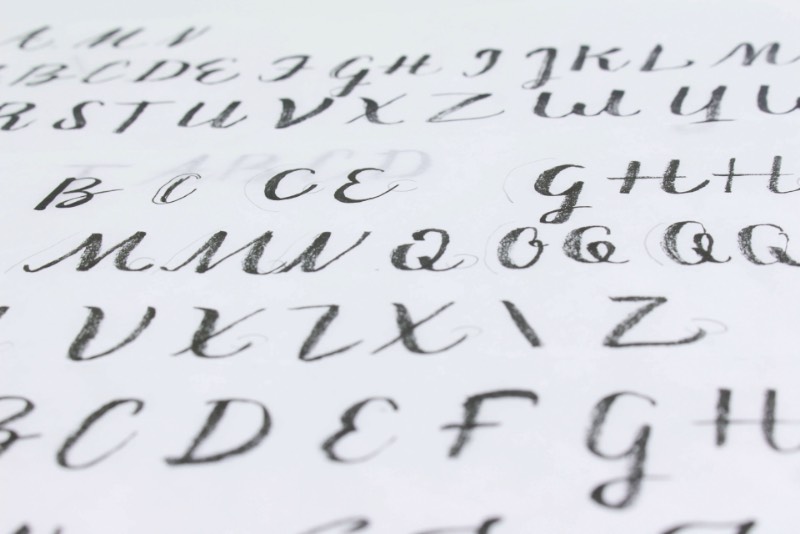 A M N
B C D E F G H I J K L M
R S T U V X Z W Y U
B C C E G H H
M M N Q O Q Q Q
U V X Z X \ Z
B C D E F G H